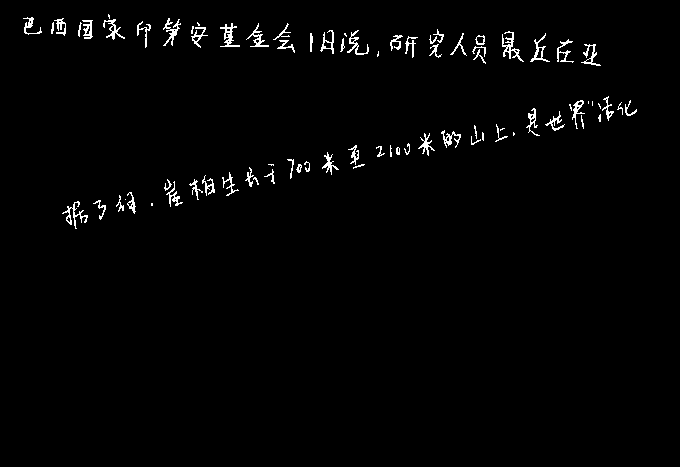 巴西国家印第安基金会1日说,研究人员最近在亚
据了解,崖柏生长于700米至2100米的山上,是世界"活化